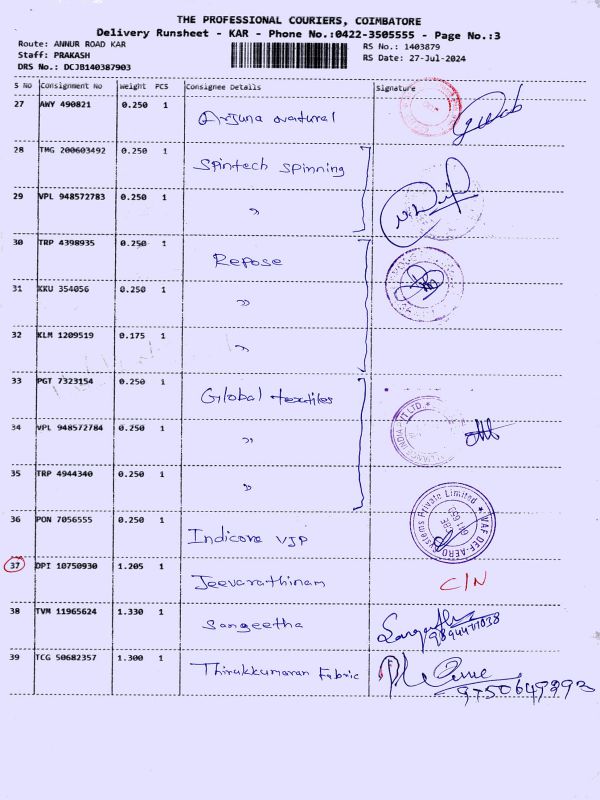 THE PROFESSIONAL COURIERS, COIMBATORE
Delivery Runsheet - KAR - Phone No.:0422-3505555 - Page No.:3
Route: ANNUR ROAD KAR RS No.: 1403879
Staff: PRAKASH RS Date: 27-Jul-2024
DRS No.: DCJB140387903
S No Consignment No Weight PCS Consignee Details Signature
27 AWY 490821 0.250 1 Arjuna
28 TMG 200603492 0.250 1 Spintech Spinning
29 VPL 948572783 0.250 1 "
30 TRP 4398935 0.250 1 Repose
31 KKU 354056 0.250 1 "
32 KLM 1209519 0.175 1 "
33 PGT 7323154 0.250 1 Global textiles
34 VPL 948572784 0.250 1 "
35 TRP 4944340 0.250 1 "
36 PON 7056555 0.250 1 VJP
VAF DEF-AERO Systems Private Limited
37 DPI 10750930 1.205 1 Jeevarathinam C/N
38 TVM 11965624 1.330 1 Sangeetha Sangeetha
39 TCG 50682357 1.300 1 Thirukkumaran Fabric
9750649293